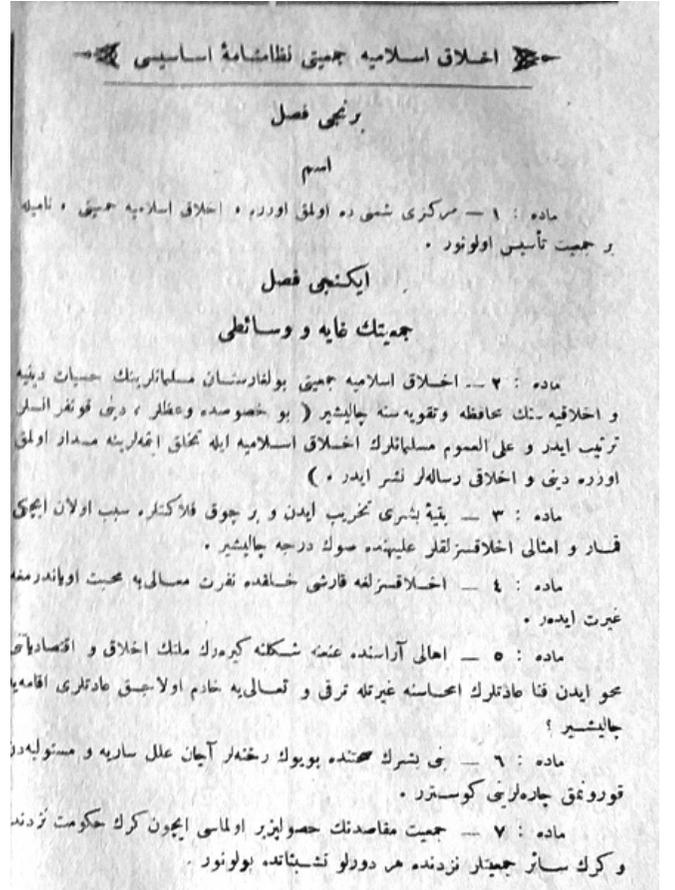 اخلاق اسلامیه جمعیتی نظامنامهٔ اساسیسی
برنجی فصل
اسم
ماده : ١ — مرکزی شمنی ده اولمق اوزره « اخلاق اسلامیه جمعیتی » نامیله
بر جمعیت تأسیس اولونور .
ایکنجی فصل
جمعیتك غایه و وسائطی
ماده : ٢ — اخلاق اسلامیه جمعیتی بولغارستان مسلمانلرینك حسیات دینیه
و اخلاقیه سنك محافظه وتقویه سنه چالیشیر ( بو خصوصده وعظلر ، دینی قونفرانسلر
ترتیب ایدر و علی العموم مسلمانلرك اخلاق اسلامیه ایله تخلق ایتمه‌لرینه مدار اولمق
اوزره دینی و اخلاقی رساله‌لر نشر ایدر . )
ماده : ٣ — بقیهٔ بشری تخریب ایدن و بر چوق فلاکتلره سبب اولان ایچکی
قمار و امثالی اخلاقسزلقلر علیهنده صوك درجه چالیشیر .
ماده : ٤ — اخلاقسزلغه قارشی خلقده نفرت معالی‌یه محبت اویاندرمغه
غیرت ایدر .
ماده : ٥ — اهالی آراسنده عنعنه شکلنه کیره‌رك ملتك اخلاق و اقتصادیاتنی
محو ایدن فنا عادتلرك امحاسنه غیرتله ترقی و تعالی‌یه خادم اولاجق عادتلری اقامه‌یه
چالیشیر ؟
ماده : ٦ — بنی بشرك صحتنده بویوك رخنه‌لر آچان علل ساریه و مستولیه‌دن
قورونمق چاره‌لرینی کوسترر .
ماده : ٧ — جمعیت مقاصدنك حصولپذیر اولماسی ایچون کرك حکومت نزدنده
و کرك سائر جمعیتلر نزدنده هر دورلو تشبثاتده بولونور .